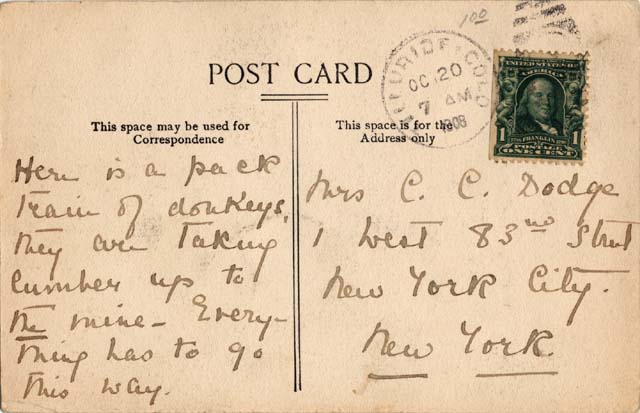 100
TELLURIDE, COLO
OC 20
7 AM
1908
UNITED STATES OF
AMERICA
1 FRANKLIN 1
POSTAGE
ONE CENT
POST CARD
This space may be used for
Correspondence
This space is for the
Address only
Here is a pack
train of donkeys,
they are taking
lumber up to
the mine – Every-
thing has to go
this way.
Mrs C. C. Dodge
1 West 83nd Street
New York City.
New York